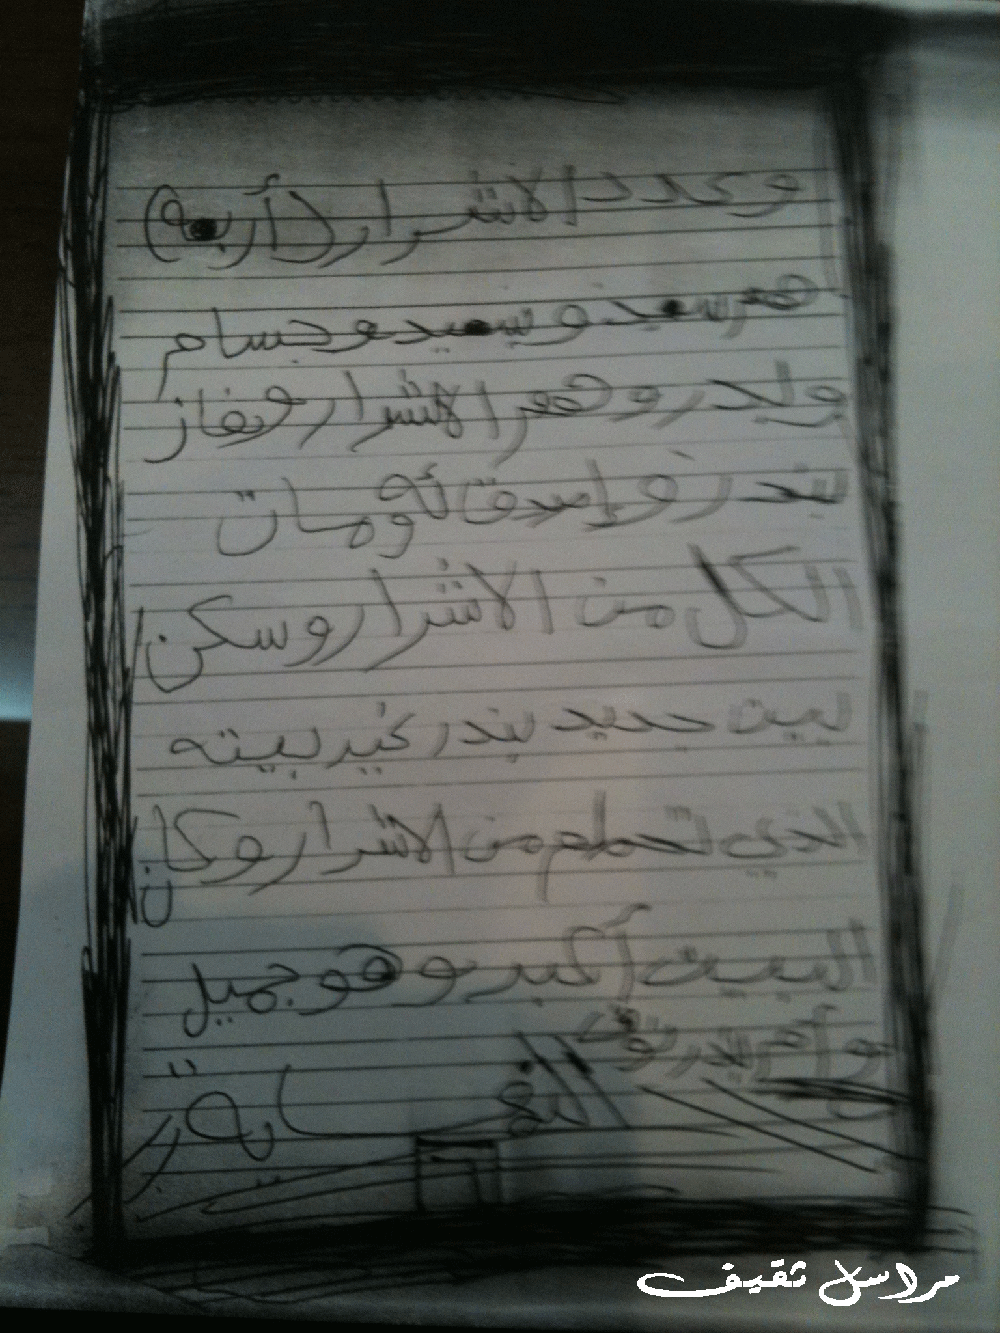 وعدد الاشرار (أربعة)
هم سعيد و سعيد وجسام
وليدر وهم الاشرار وفاز
بندر و إصدقائه ومات
الكل من الاشرار وسكن
بيت جديد بندر غير بيته
الذي تحطم من الاشرار وكان
البيت أكبر وهو جميل
و أم بندر
النهاية
مراسل ثقيف